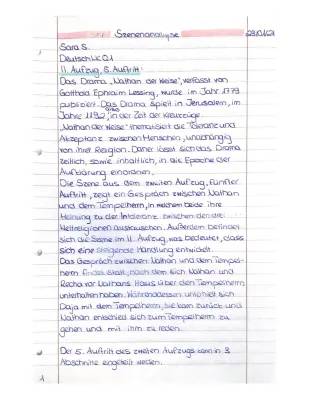 Szenenanalyse
Sara S.
Deutsch LK Q1
II. Aufzug, 5. Auftritt:
Das Drama „Nathan der Weise", verfasst von
Gotthold Ephraim Lessing, wurde im Jahr 1779
publiziert. Das Drama spielt in Jerusalem, im
Jahre 1192, in der Zeit der Kreuzzüge.
„Nathan der Weise" thematisiert die Toleranz und
Akzeptanz zwischen Menschen, unabhängig
von ihrer Religion. Daher lässt sich das Drama
zeitlich, sowie inhaltlich, in die Epoche der
Aufklärung einordnen.
Die Szene aus dem zweiten Aufzug, fünfter
Auftritt, zeigt ein Gespräch zwischen Nathan
und dem Tempelherrn, in welchem beide ihre
Meinung zu der Intoleranz zwischen den drei
Weltreligionen austauschen. Außerdem befindet
sich die Szene im II. Aufzug, was bedeutet, dass
sich eine steigende Handlung entwickelt.
Das Gespräch zwischen Nathan und dem Tempel-
herrn findet statt, nach dem sich Nathan und
Recha vor Nathans Haus über den Tempelherrn
unterhalten haben. Währenddessen unterhielt sich
Daja mit dem Tempelherrn, sie kam zurück und
Nathan entschied sich zum Tempelherrn zu
gehen und mit ihm zu reden.
Der 5. Auftritt des zweiten Aufzugs kann in 3
Abschnitte eingeteilt werden.
1